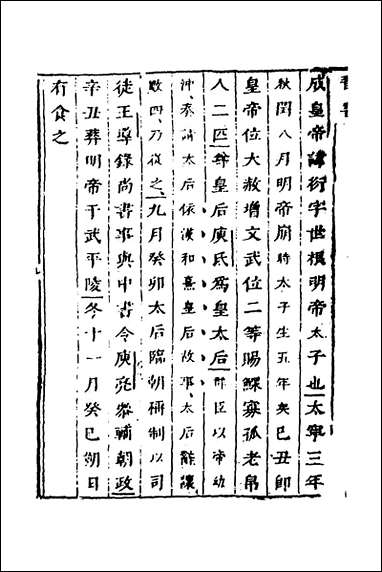 成皇帝諱衍字世根明帝太子也太寧三年
秋閏八月明帝崩時太子生五年矣己丑卽
皇帝位大赦增文武位二等賜鰥寡孤老帛
人二匹尊皇后庾氏爲皇太后群臣以帝幼
沖奏請太后依漢和熹皇后故事太后辭讓
數四乃從之九月癸卯太后臨朝稱制以司
徒王導錄尚書事與中書令庾亮參輔朝政
辛丑葬明帝于武平陵冬十一月癸巳朔日
有食之